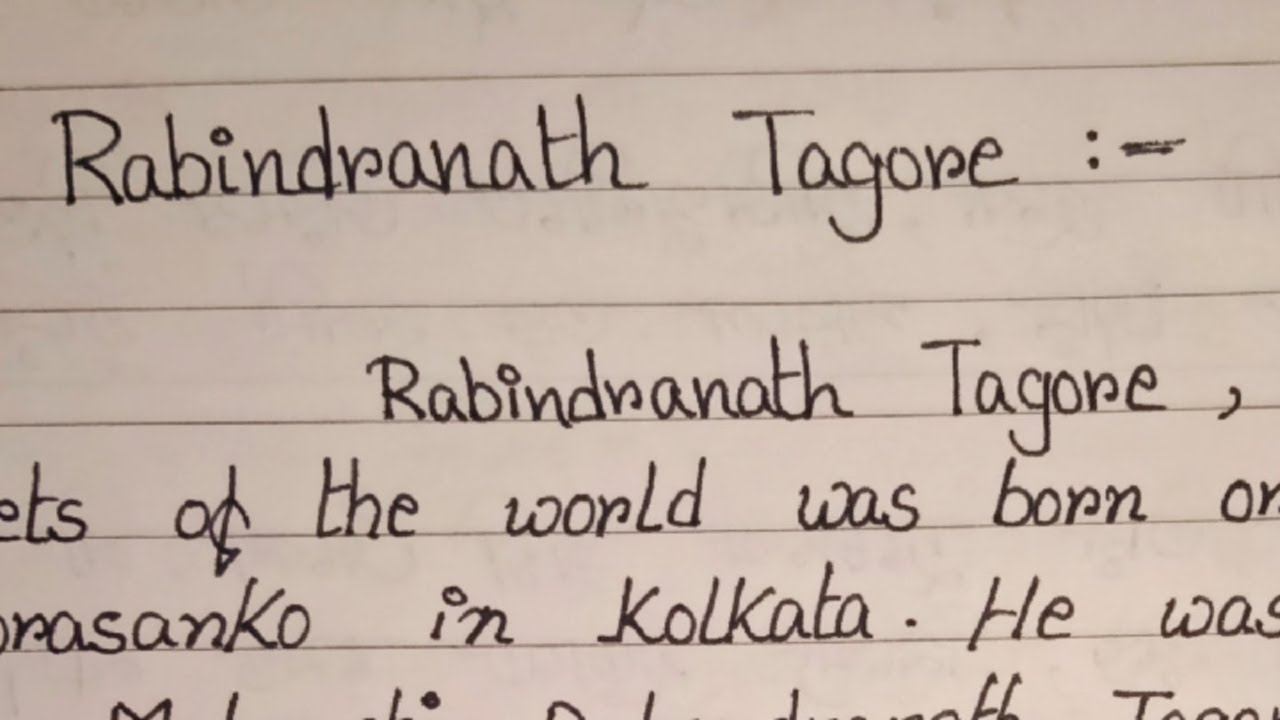 Rabindranath Tagore :-
Rabindranath Tagore ,
ets of the world was born on
orasanko in Kolkata. He was